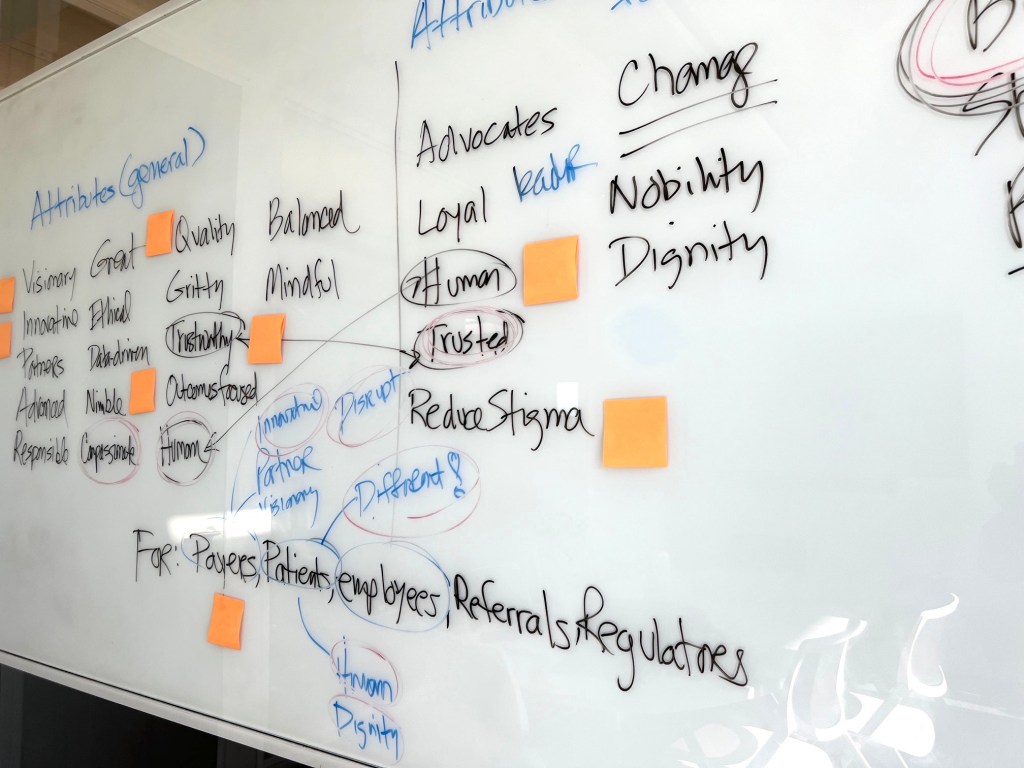 Attributes
Attributes (general)
Visionary
Innovative
Partners
Advanced
Responsible
Great
Ethical
Data-driven
Nimble
Compassionate
Quality
Gritty
Trustworthy
Outcomes focused
Human
Balanced
Mindful
Advocates
Loyal
leader
Human
Trusted
Reduce Stigma
Change
Nobility
Dignity
Innovative
Partner
Visionary
Disrupt
Different!
For: Payers, Patients, employees, Referrals, Regulators
Human
Dignity